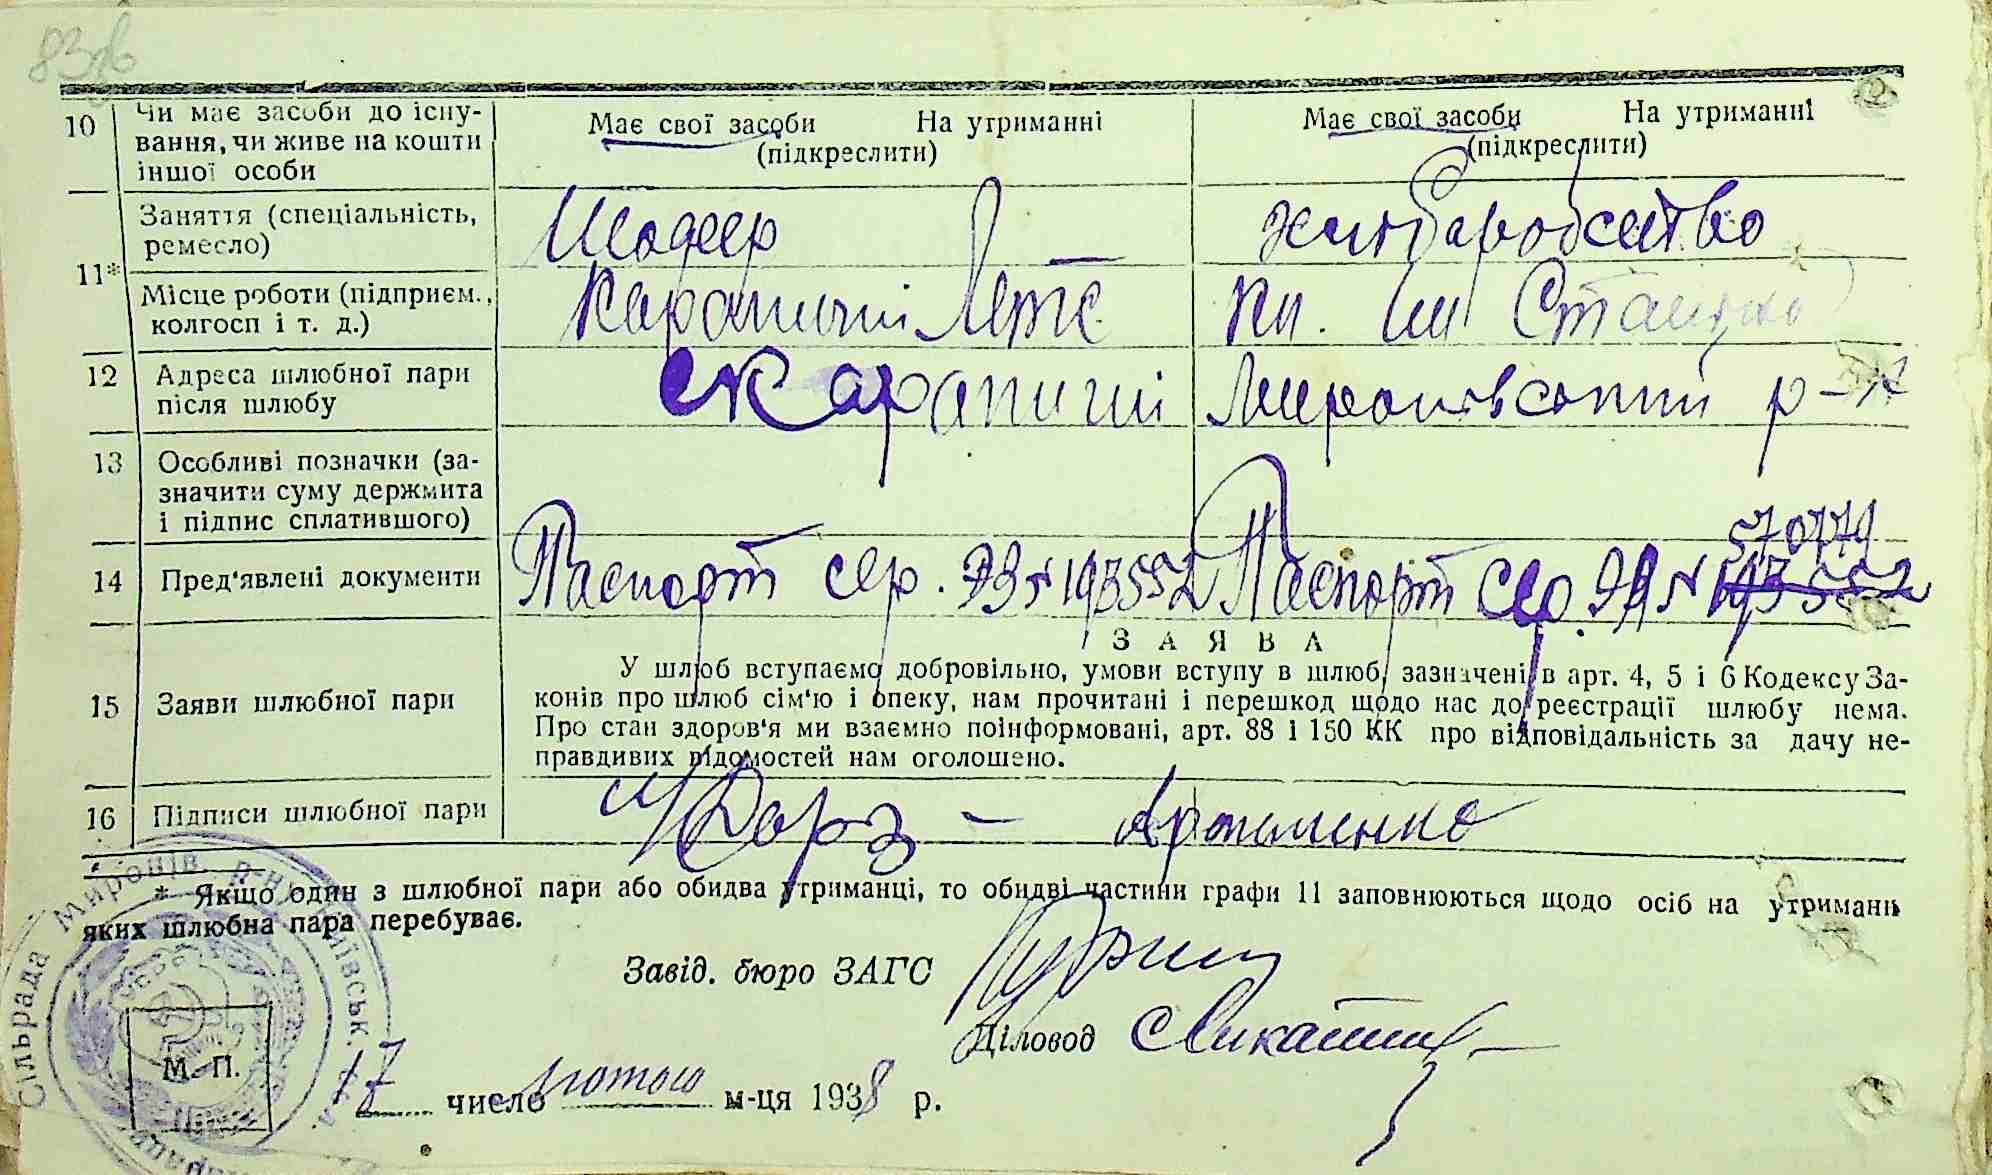 83зв
10 Чи має засоби до існу-
вання, чи живе на кошти
іншої особи
Має свої засоби На утриманні
(підкреслити)
Має свої засоби На утриманні
(підкреслити)
11*
Заняття (спеціальність,
ремесло)
Шофер
хліборобство
Місце роботи (підприєм.,
колгосп і т. д.)
Карапиші МТС
ім
12 Адреса шлюбної пари
після шлюбу
с Карапиші Миронівський р-н
13 Особливі позначки (за-
значити суму держмита
і підпис сплатившого)
14 Пред'явлені документи
Паспорт сер. ЭЭ № 193552
Паспорт сер. № 193552
570779
15 Заяви шлюбної пари
ЗАЯВА
У шлюб вступаємо добровільно, умови вступу в шлюб, зазначені в арт. 4, 5 і 6 Кодексу За-
конів про шлюб сім'ю і опеку, нам прочитані і перешкод щодо нас до реєстрації шлюбу нема.
Про стан здоров'я ми взаємно поінформовані, арт. 88 і 150 КК про відповідальність за дачу не-
правдивих відомостей нам оголошено.
16 Підписи шлюбної пари
Артеменко
* Якщо один з шлюбної пари або обидва утриманці, то обидві частини графи 11 заповнюються щодо осіб на утриманн
яких шлюбна пара перебуває.
Завід. бюро ЗАГС
Діловод
М. П.
17 число лютого м-ця 1938 р.
Сільрада Миронів. р-ну Київськ.